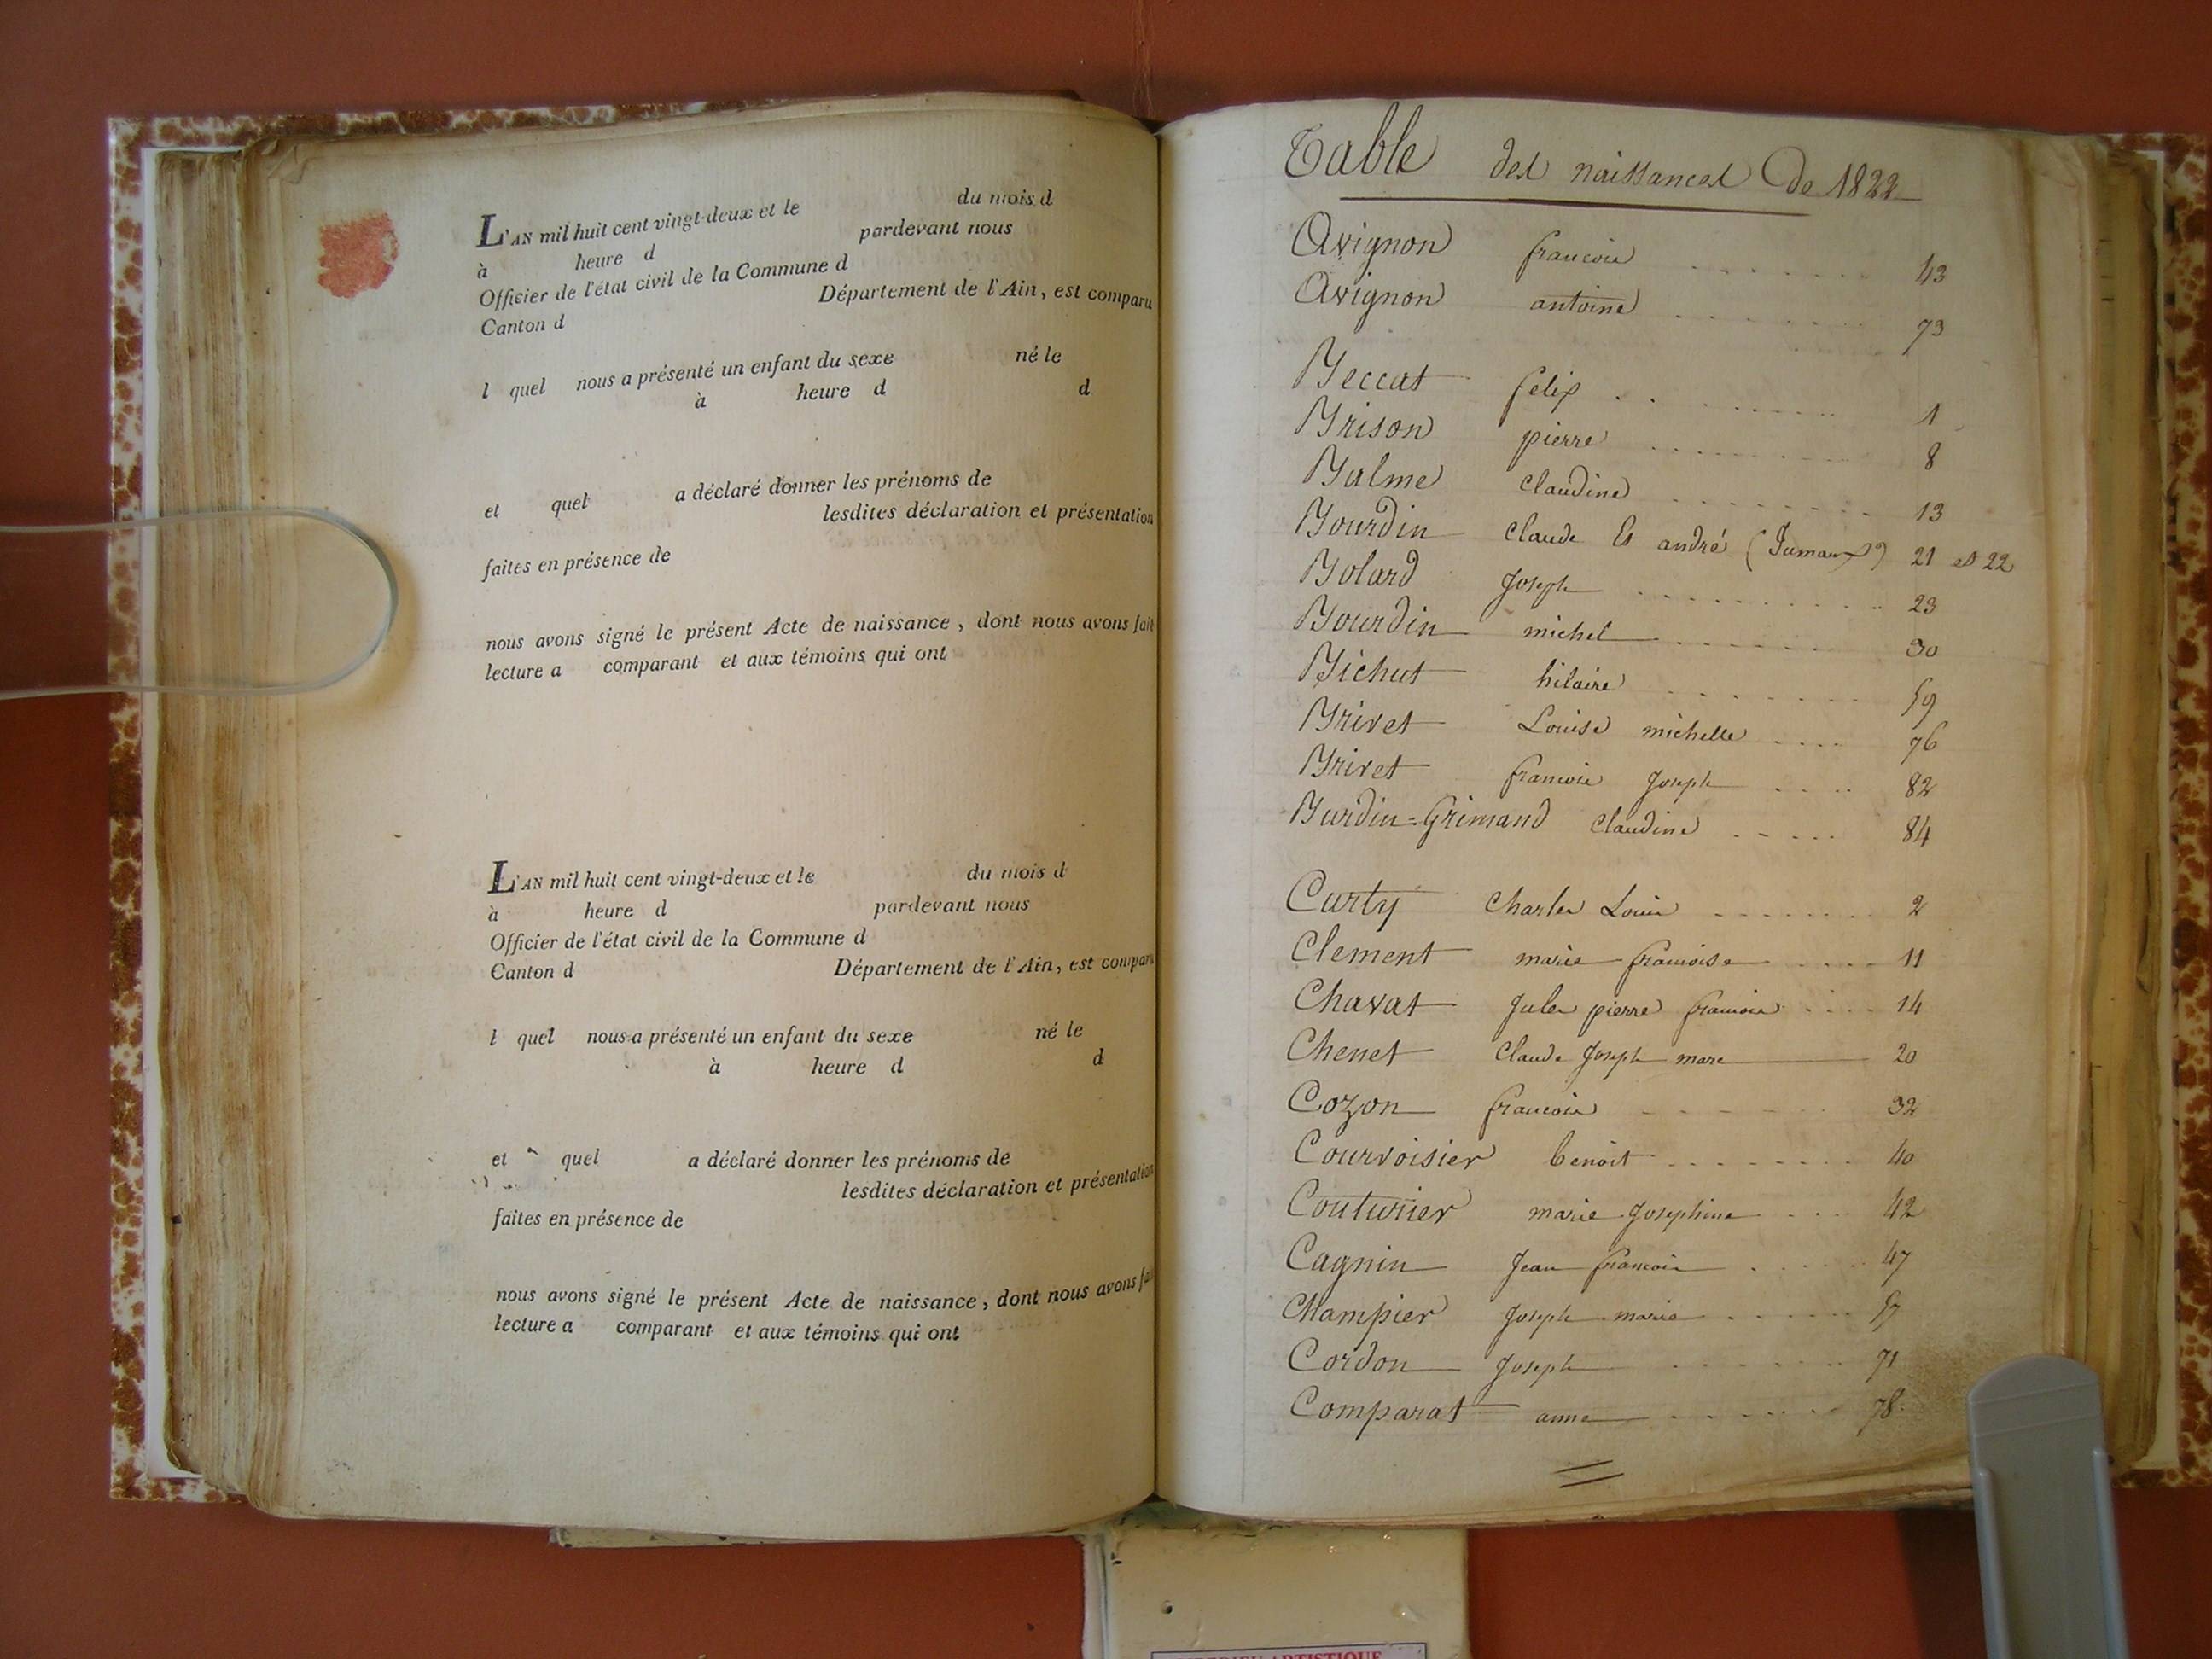 L'AN mil huit cent vingt-deux et le du mois d
à heure d pardevant nous
Officier de l'état civil de la Commune d
Canton d Département de l'Ain, est comparu
l quel nous a présenté un enfant du sexe né le
à heure d d
et quel a déclaré donner les prénoms de
lesdites déclaration et présentation
faites en présence de
nous avons signé le présent Acte de naissance, dont nous avons fait
lecture a comparant et aux témoins qui ont
L'AN mil huit cent vingt-deux et le du mois d
à heure d pardevant nous
Officier de l'état civil de la Commune d
Canton d Département de l'Ain, est comparu
l quel nous a présenté un enfant du sexe né le
à heure d d
et quel a déclaré donner les prénoms de
lesdites déclaration et présentation
faites en présence de
nous avons signé le présent Acte de naissance, dont nous avons
lecture a comparant et aux témoins qui ont
Table des naissances De 1822
Avignon francois 43
Avignon antoine 73
Beccat felix 1
Brison pierre 8
Balme Claudine 13
Bourdin Claude Et andré (Jumaux) 21 et 22
Bolard Joseph 23
Bourdin michel 30
Bichut hilaire 59
Brivet Louise michelle 76
Brivet francois Joseph 82
Burdin=Grimand Claudine 84
Curty Charles Louis 2
Clement marie francoise 11
Chavat Jules pierre francois 14
Chenet Claude Joseph marc 20
Cozon francois 32
Courvoisier benoit 40
Couturier marie Josephine 42
Cagnin Jean francois 47
Champier Joseph marie 57
Cordon Joseph 71
Comparat anne 78
ARTISTIQUE